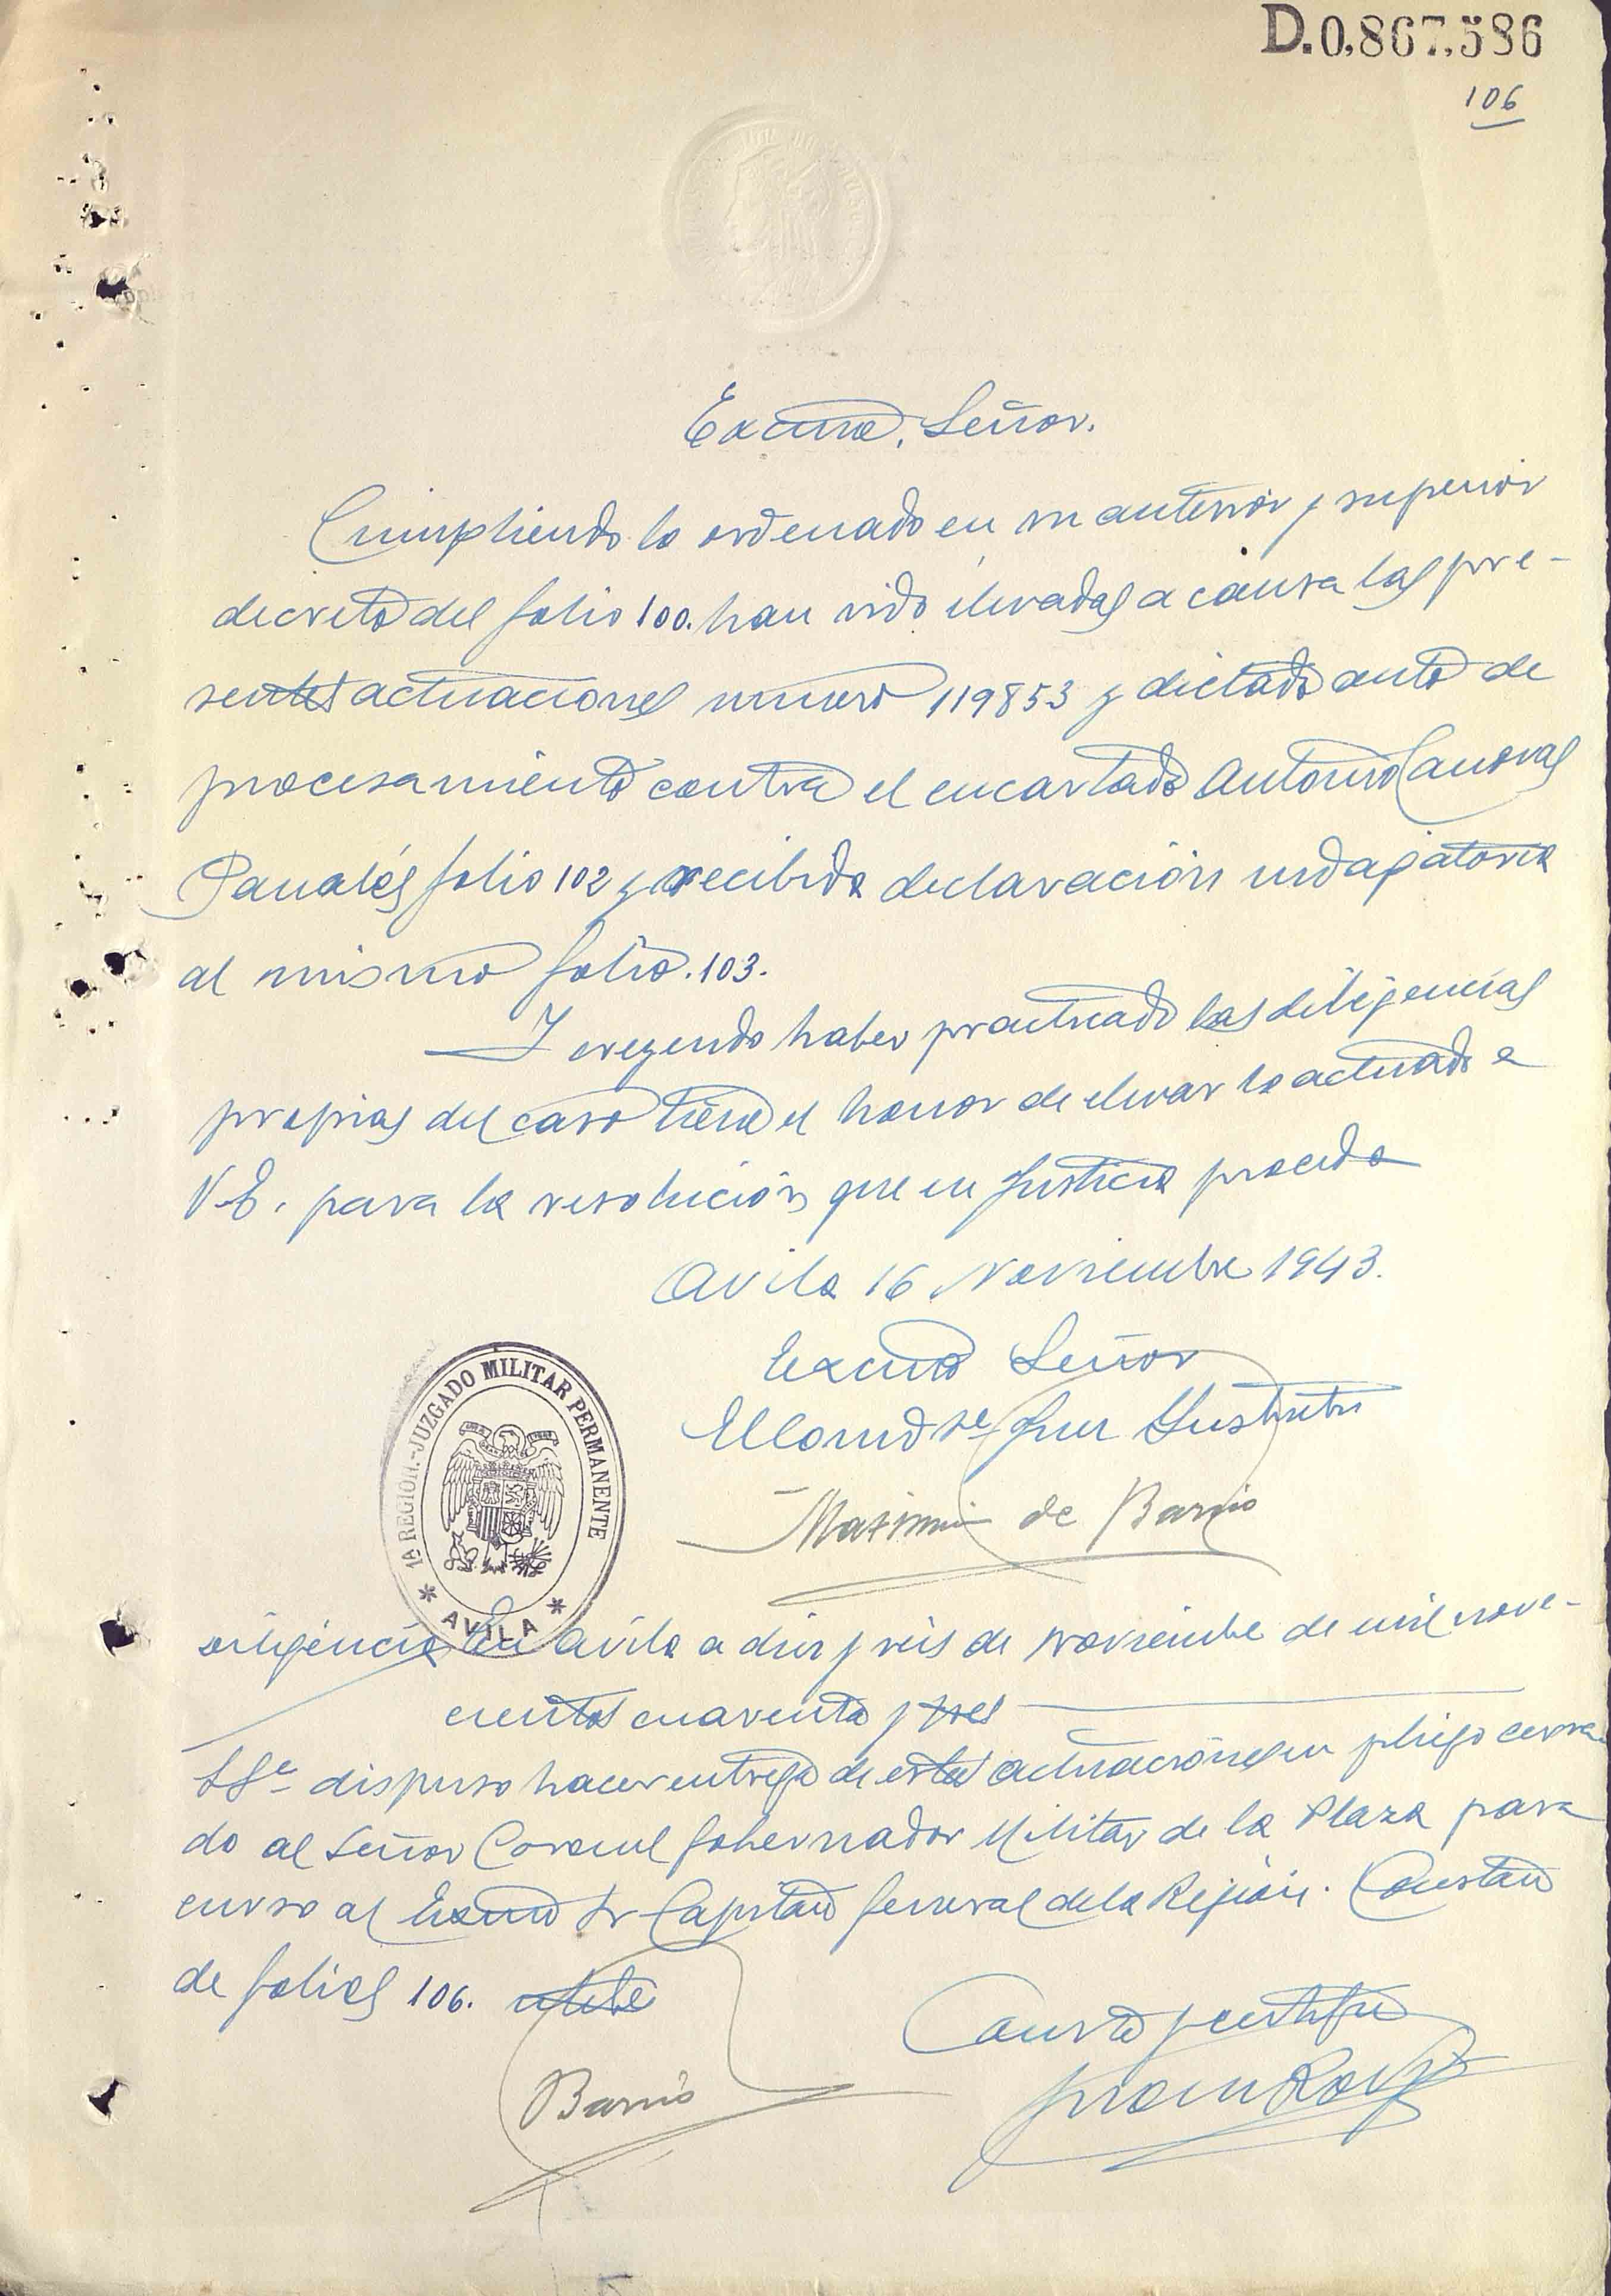 D.0,867,586
106
Excmo. Señor.
Cumpliendo lo ordenado en su anterior y superior
decreto del folio 100. han sido elevadas a causa las pre-
sentes actuaciones numero 119853 y dictado auto de
procesamiento contra el encartado Antonio Canovas
folio 102 y recibida declaración indagatoria
al mismo folio. 103.
Y creyendo haber practicado las diligencias
propias del caso tiene el honor de elevar lo actuado a
V.E. para la resolución que en Justicia proceda
Avila 16 Noviembre 1943.
Excmo Señor
El Comdte Juez Instructor
de Barrio
1A REGION.-JUZGADO MILITAR PERMANENTE
* AVILA *
Diligencia En Avila a diez y seis de noviembre de mil nove-
cientos cuarenta y tres
SSª dispuso hacer entrega de estas actuaciones en pliego cerra-
do al Señor Coronel Gobernador Militar de la Plaza para
curso al Excmo Sr Capitan General de la Región. Constan
de folios 106.
Barrio